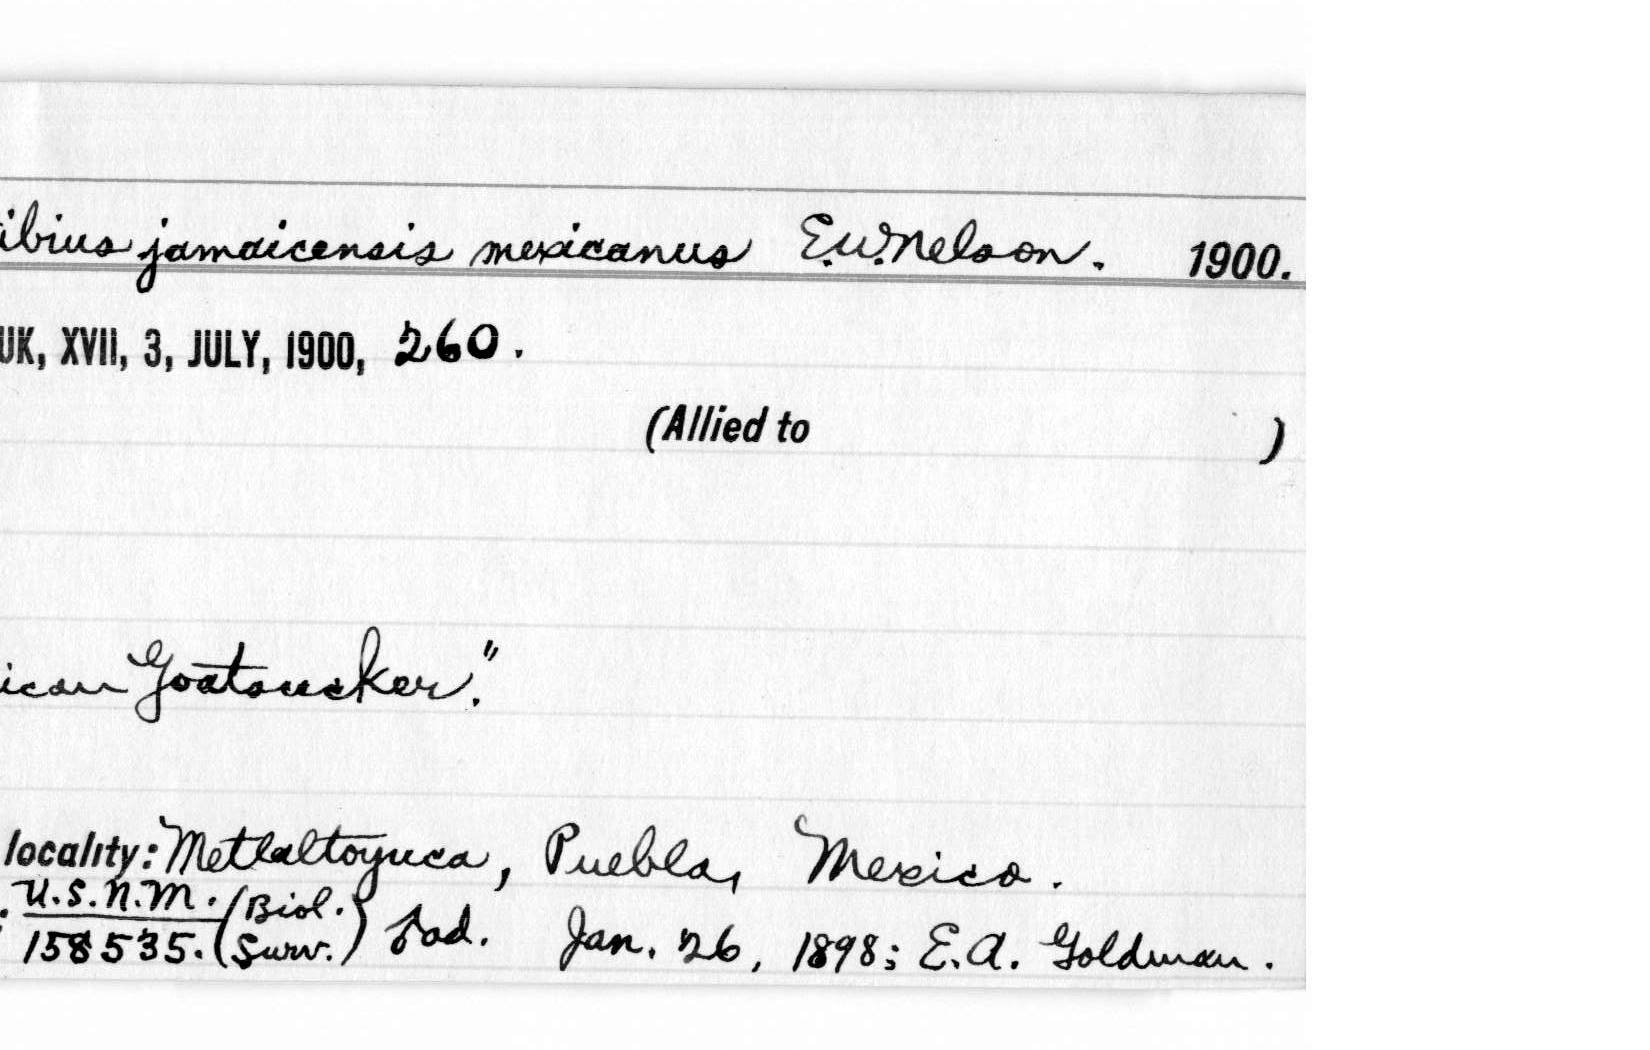 ibius jamaicensis mexicanus E.W. Nelson. 1900.
UK, XVII, 3, JULY, 1900, 260.
(Allied to )
ican Goatsucker."
locality: Metlaltoyuca, Puebla, Mexico.
U.S.N.M. (Biol.
158535. Surv.) ad. Jan. 26, 1898; E.A. Goldman.